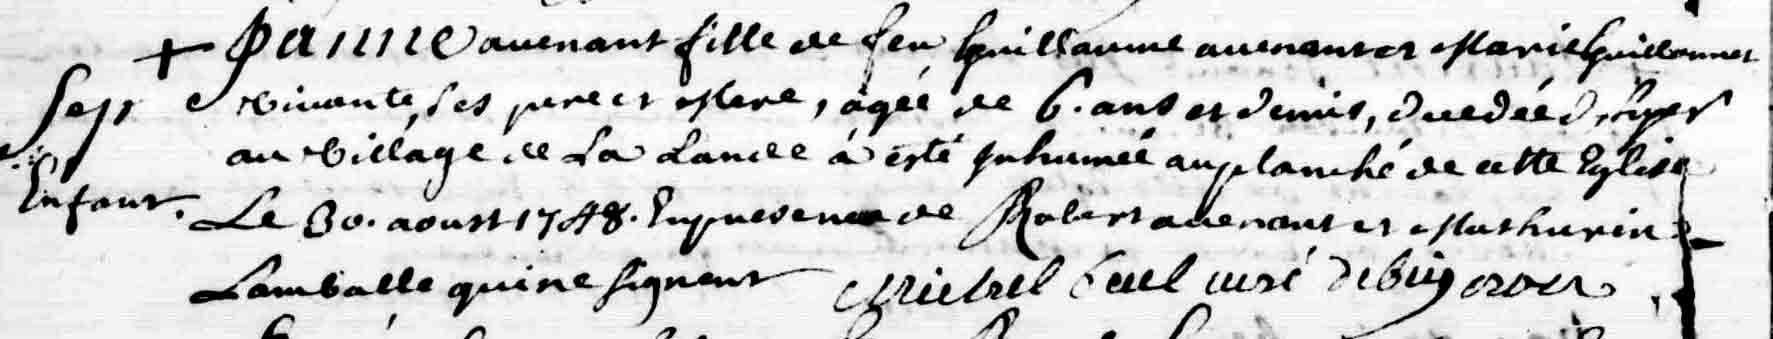 + Janne avenant fille de feu Guillaume avenant et Marie Guillaumet
vivante, ses pere et Mere, agée de 6. ans et demis, decedée d'hyer
Sep
au village de La Lande à esté Inhumée au planché de cette Eglise
Enfant.
Le 30. aoust 1748. En presence de Robert avenant et Mathurin
Lamballe qui ne signent Michel curé de